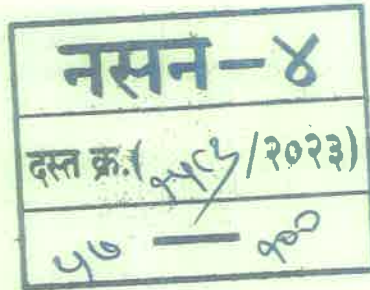 नसन-४
दस्त क्र.( १५८१ /२०२३)
५७ — १००